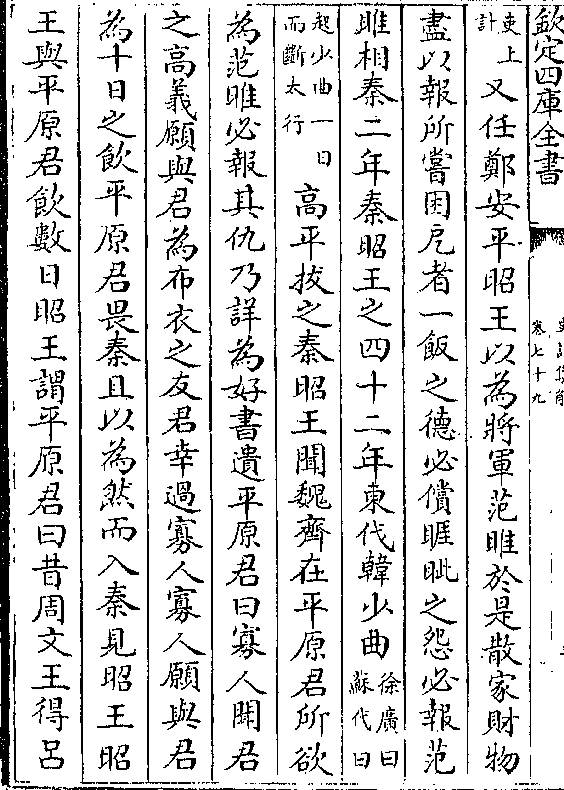 欽定四庫全書
卷七十九
吏上計又任鄭安平昭王以為將軍范睢於是散家財物
盡以報所嘗困戹者一飯之德必償睚眦之怨必報范
睢相秦二年秦昭王之四十二年東代韓少曲徐廣曰蘇代曰
起少曲一日而斷太行高平拔之秦昭王聞魏齊在平原君所欲
為范睢必報其仇乃詳為好書遺平原君曰寡人聞君
之高義願與君為布衣之友君幸過寡人寡人願與君
為十日之飲平原君畏秦且以為然而入秦見昭王昭
王與平原君飲數日昭王謂平原君曰昔周文王得呂